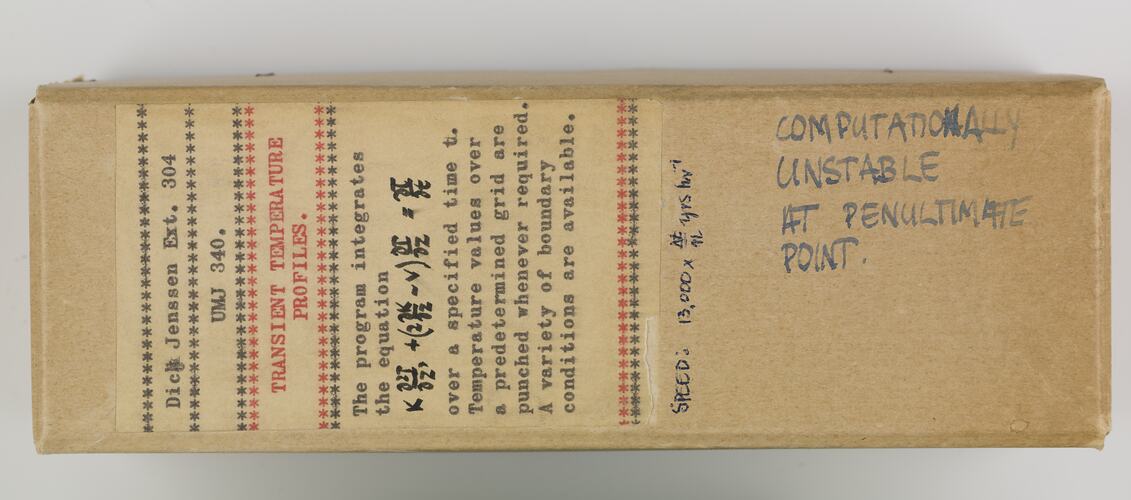 ********************
Dick Jenssen Ext. 304
********************
UMJ 340.
********************
********************
TRANSIENT TEMPERATURE
PROFILES.
********************
********************
The program integrates
the equation
K ∂²T/∂Z² + (2 ∂K/∂Z - V) ∂T/∂Z = ∂T/∂t
over a specified time t.
Temperature values over
a predetermined grid are
punched whenever required.
A variety of boundary
conditions are available.
********************
********************
SPEED: 13,000 x Δt/n yrs hr⁻¹
COMPUTATIONALLY
UNSTABLE
AT PENULTIMATE
POINT.